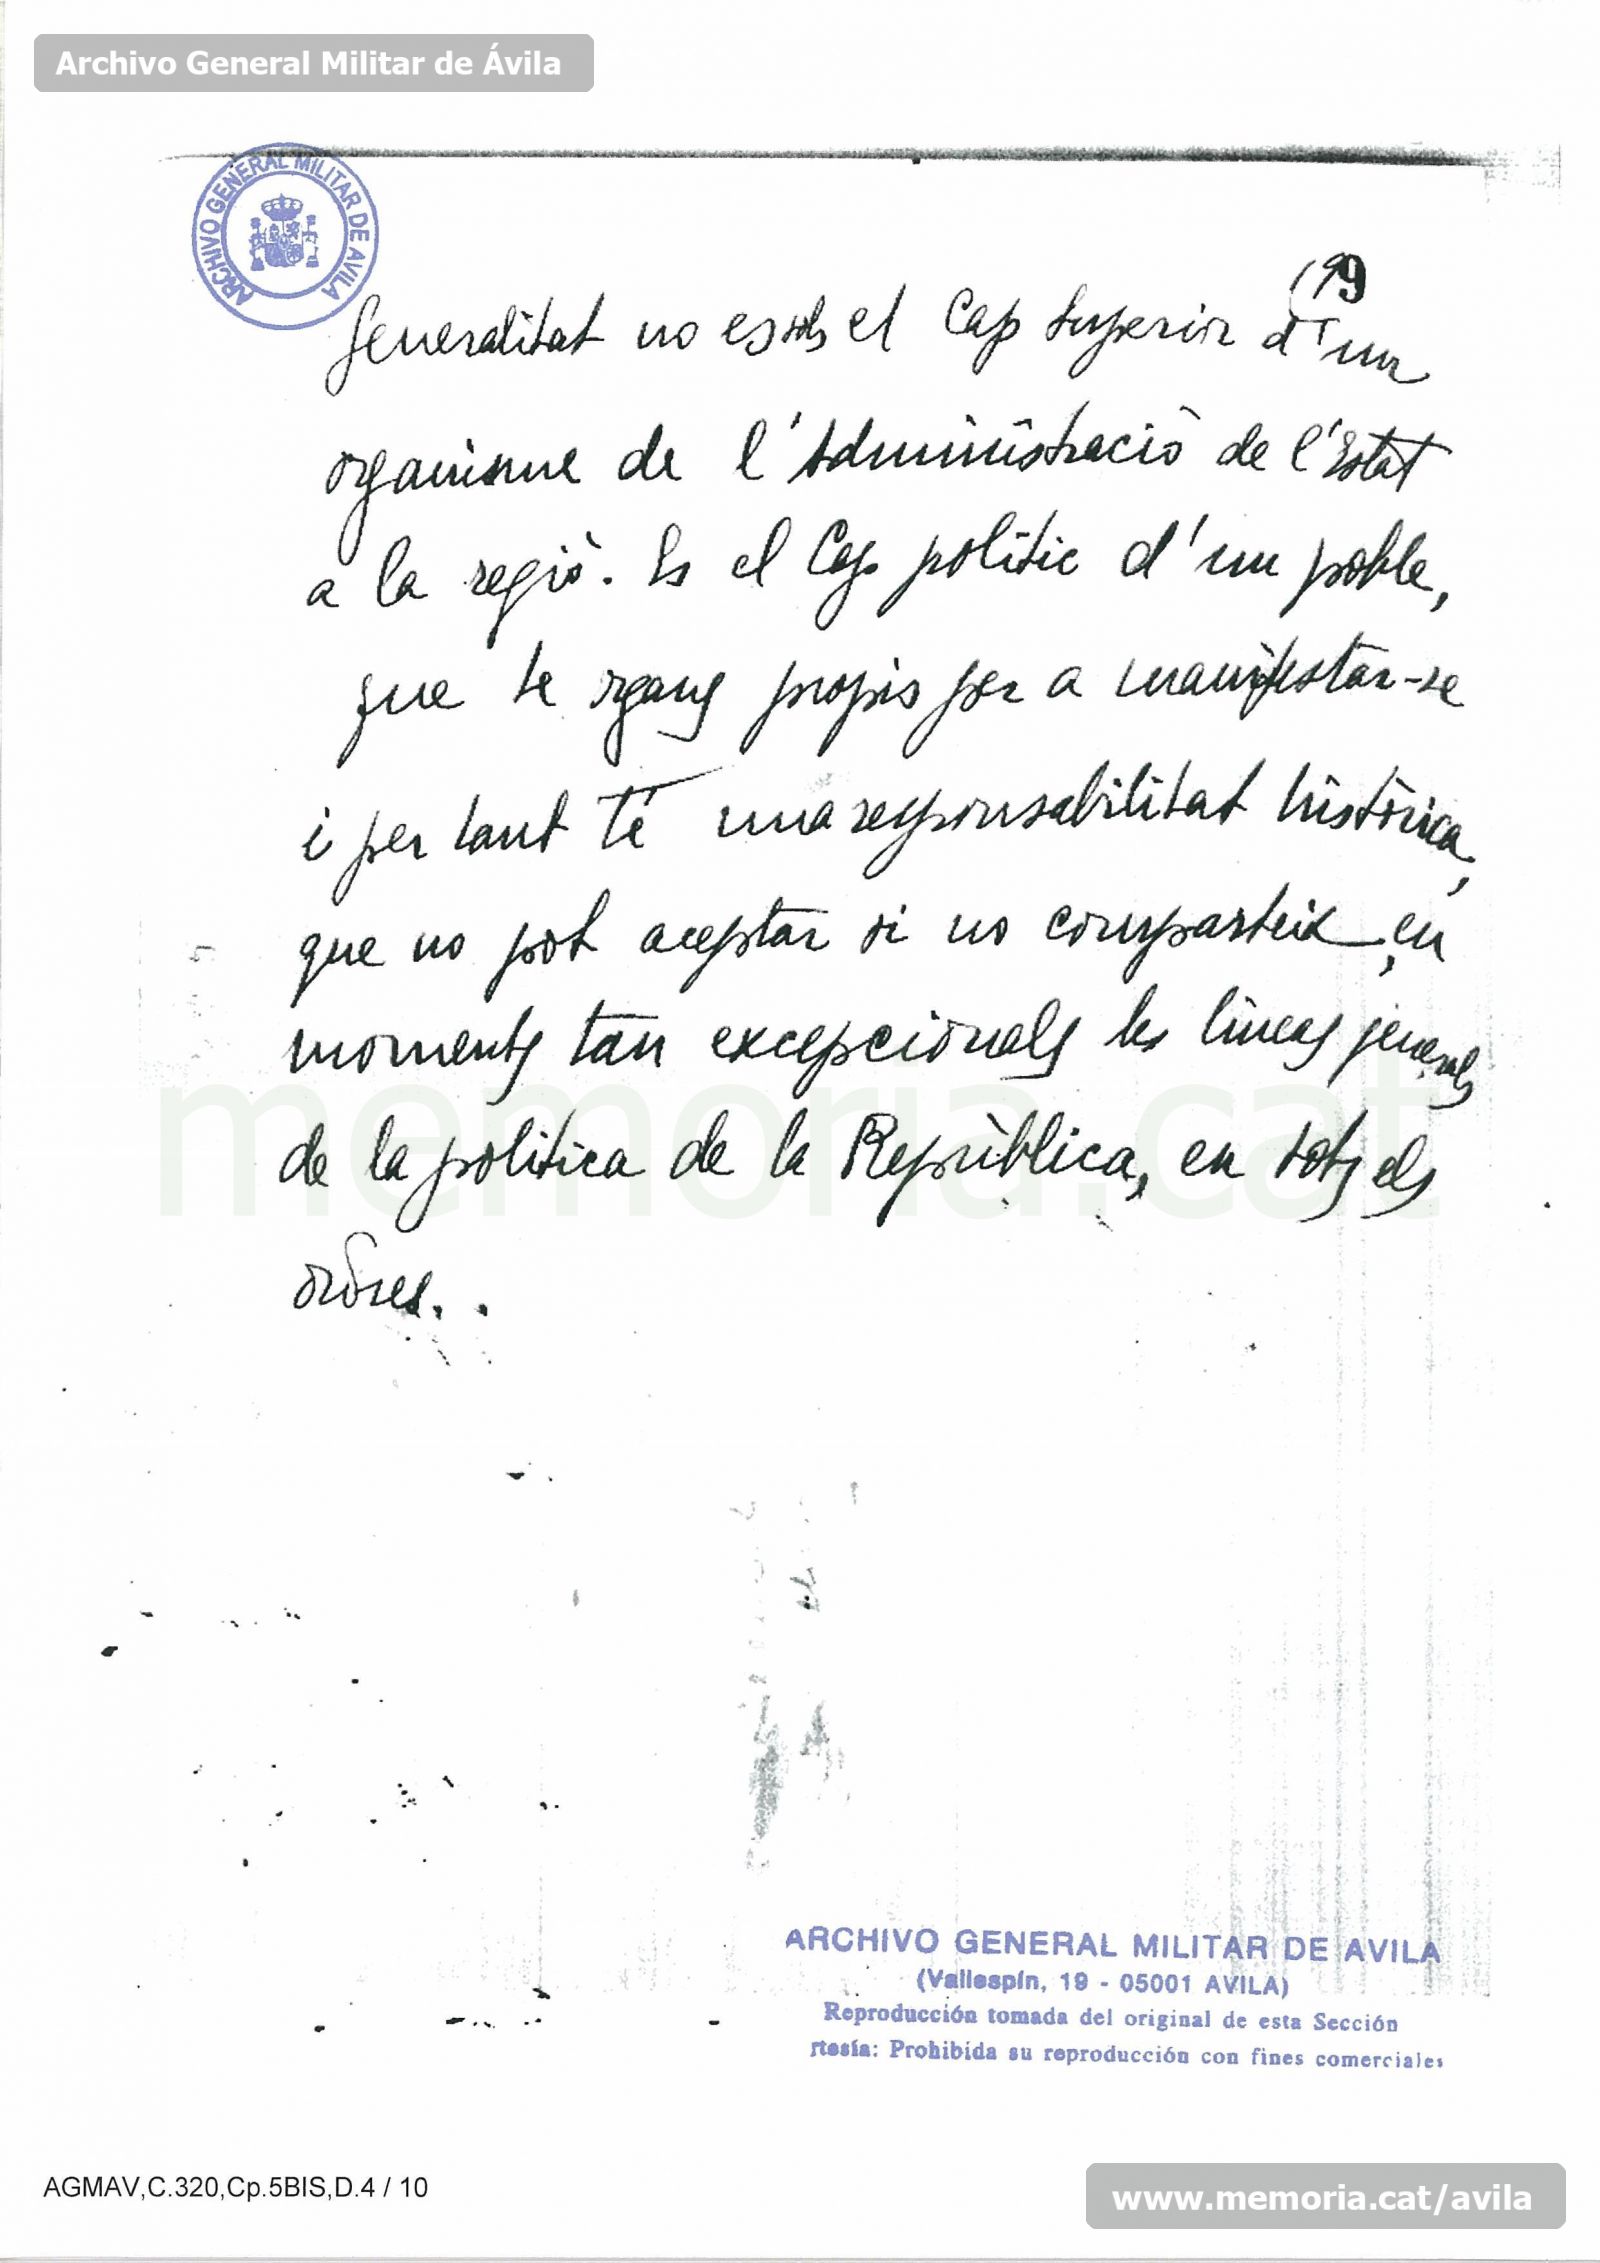 Archivo General Militar de Ávila
ARCHIVO GENERAL MILITAR DE AVILA
(19
Generalitat no es sols el Cap Superior d'un
organisme de l'Administraciò de l'Estat
a la regiò. Es el Cap polític d'un poble,
que te organs propis per a manifestar-se
i per tant té una responsabilitat històrica,
que no pot aceptar si no comparteix, en
moments tan excepcionals les líneas generals
de la politica de la Repùblica, en tots els
ordres..
memoria.cat
ARCHIVO GENERAL MILITAR DE AVILA
(Vallespín, 19 - 05001 AVILA)
Reproducción tomada del original de esta Sección
rtesía: Prohibida su reproducción con fines comerciales
AGMAV,C.320,Cp.5BIS,D.4 / 10
www.memoria.cat/avila